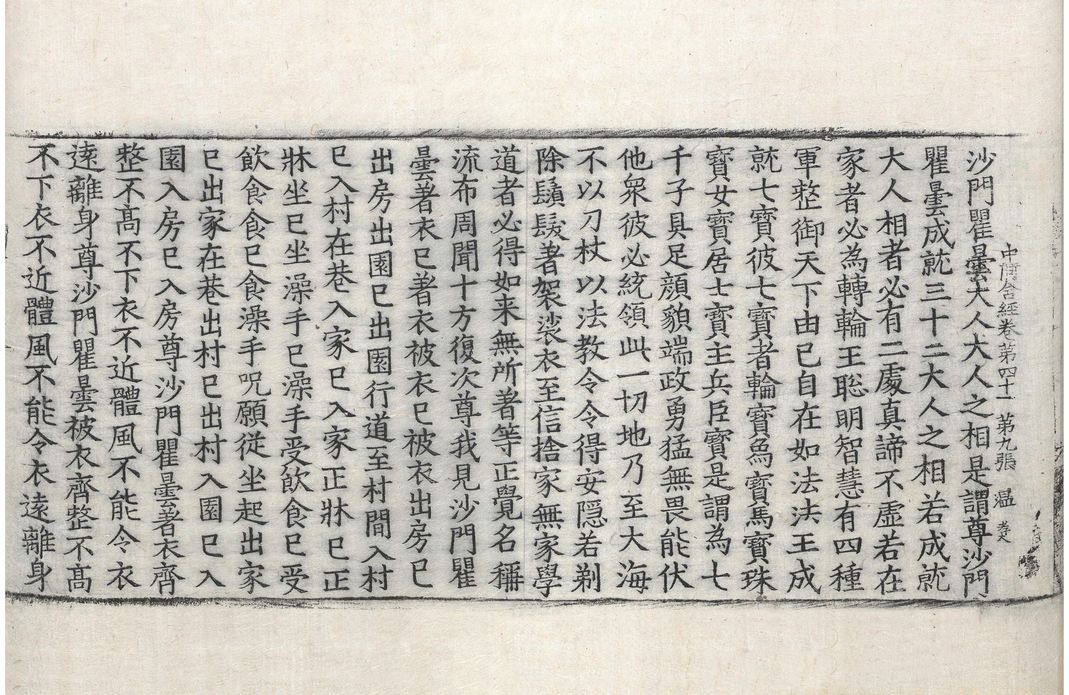 中阿含經卷第四十一 第九張 温
沙門瞿曇大人大人之相是謂尊沙門
瞿曇成就三十二大人之相若成就
大人相者必有二處真諦不虛若在
家者必為轉輪王聡明智慧有四種
軍整御天下由已自在如法法王成
就七寶彼七寶者輪寶鳥寶馬寶珠
寶女寶居士寶主兵臣寶是謂為七
千子具足顔貌端政勇猛無畏能伏
他衆彼必統領此一切地乃至大海
不以刀杖以法教令令得安隠若剃
除鬚髮著袈裟衣至信捨家無家學
道者必得如来無所著等正覺名稱
流布周聞十方復次尊我見沙門瞿
曇著衣已著衣被衣已被衣出房已
出房出園已出園行道至村間入村
已入村在巷入家已入家正牀已正
牀坐已坐澡手已澡手受飲食已受
飲食食已食澡手呪願從坐起出家
已出家在巷出村已出村入園已入
園入房已入房尊沙門瞿曇著衣齊
整不髙不下衣不近體風不能令衣
逺離身尊沙門瞿曇被衣齊整不髙
不下衣不近體風不能令衣逺離身